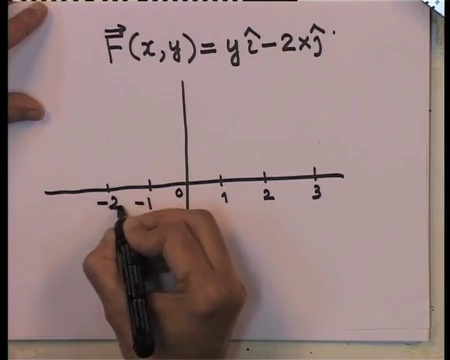 F⃗(x,y) = yî − 2xĵ
-2 -1 0 1 2 3